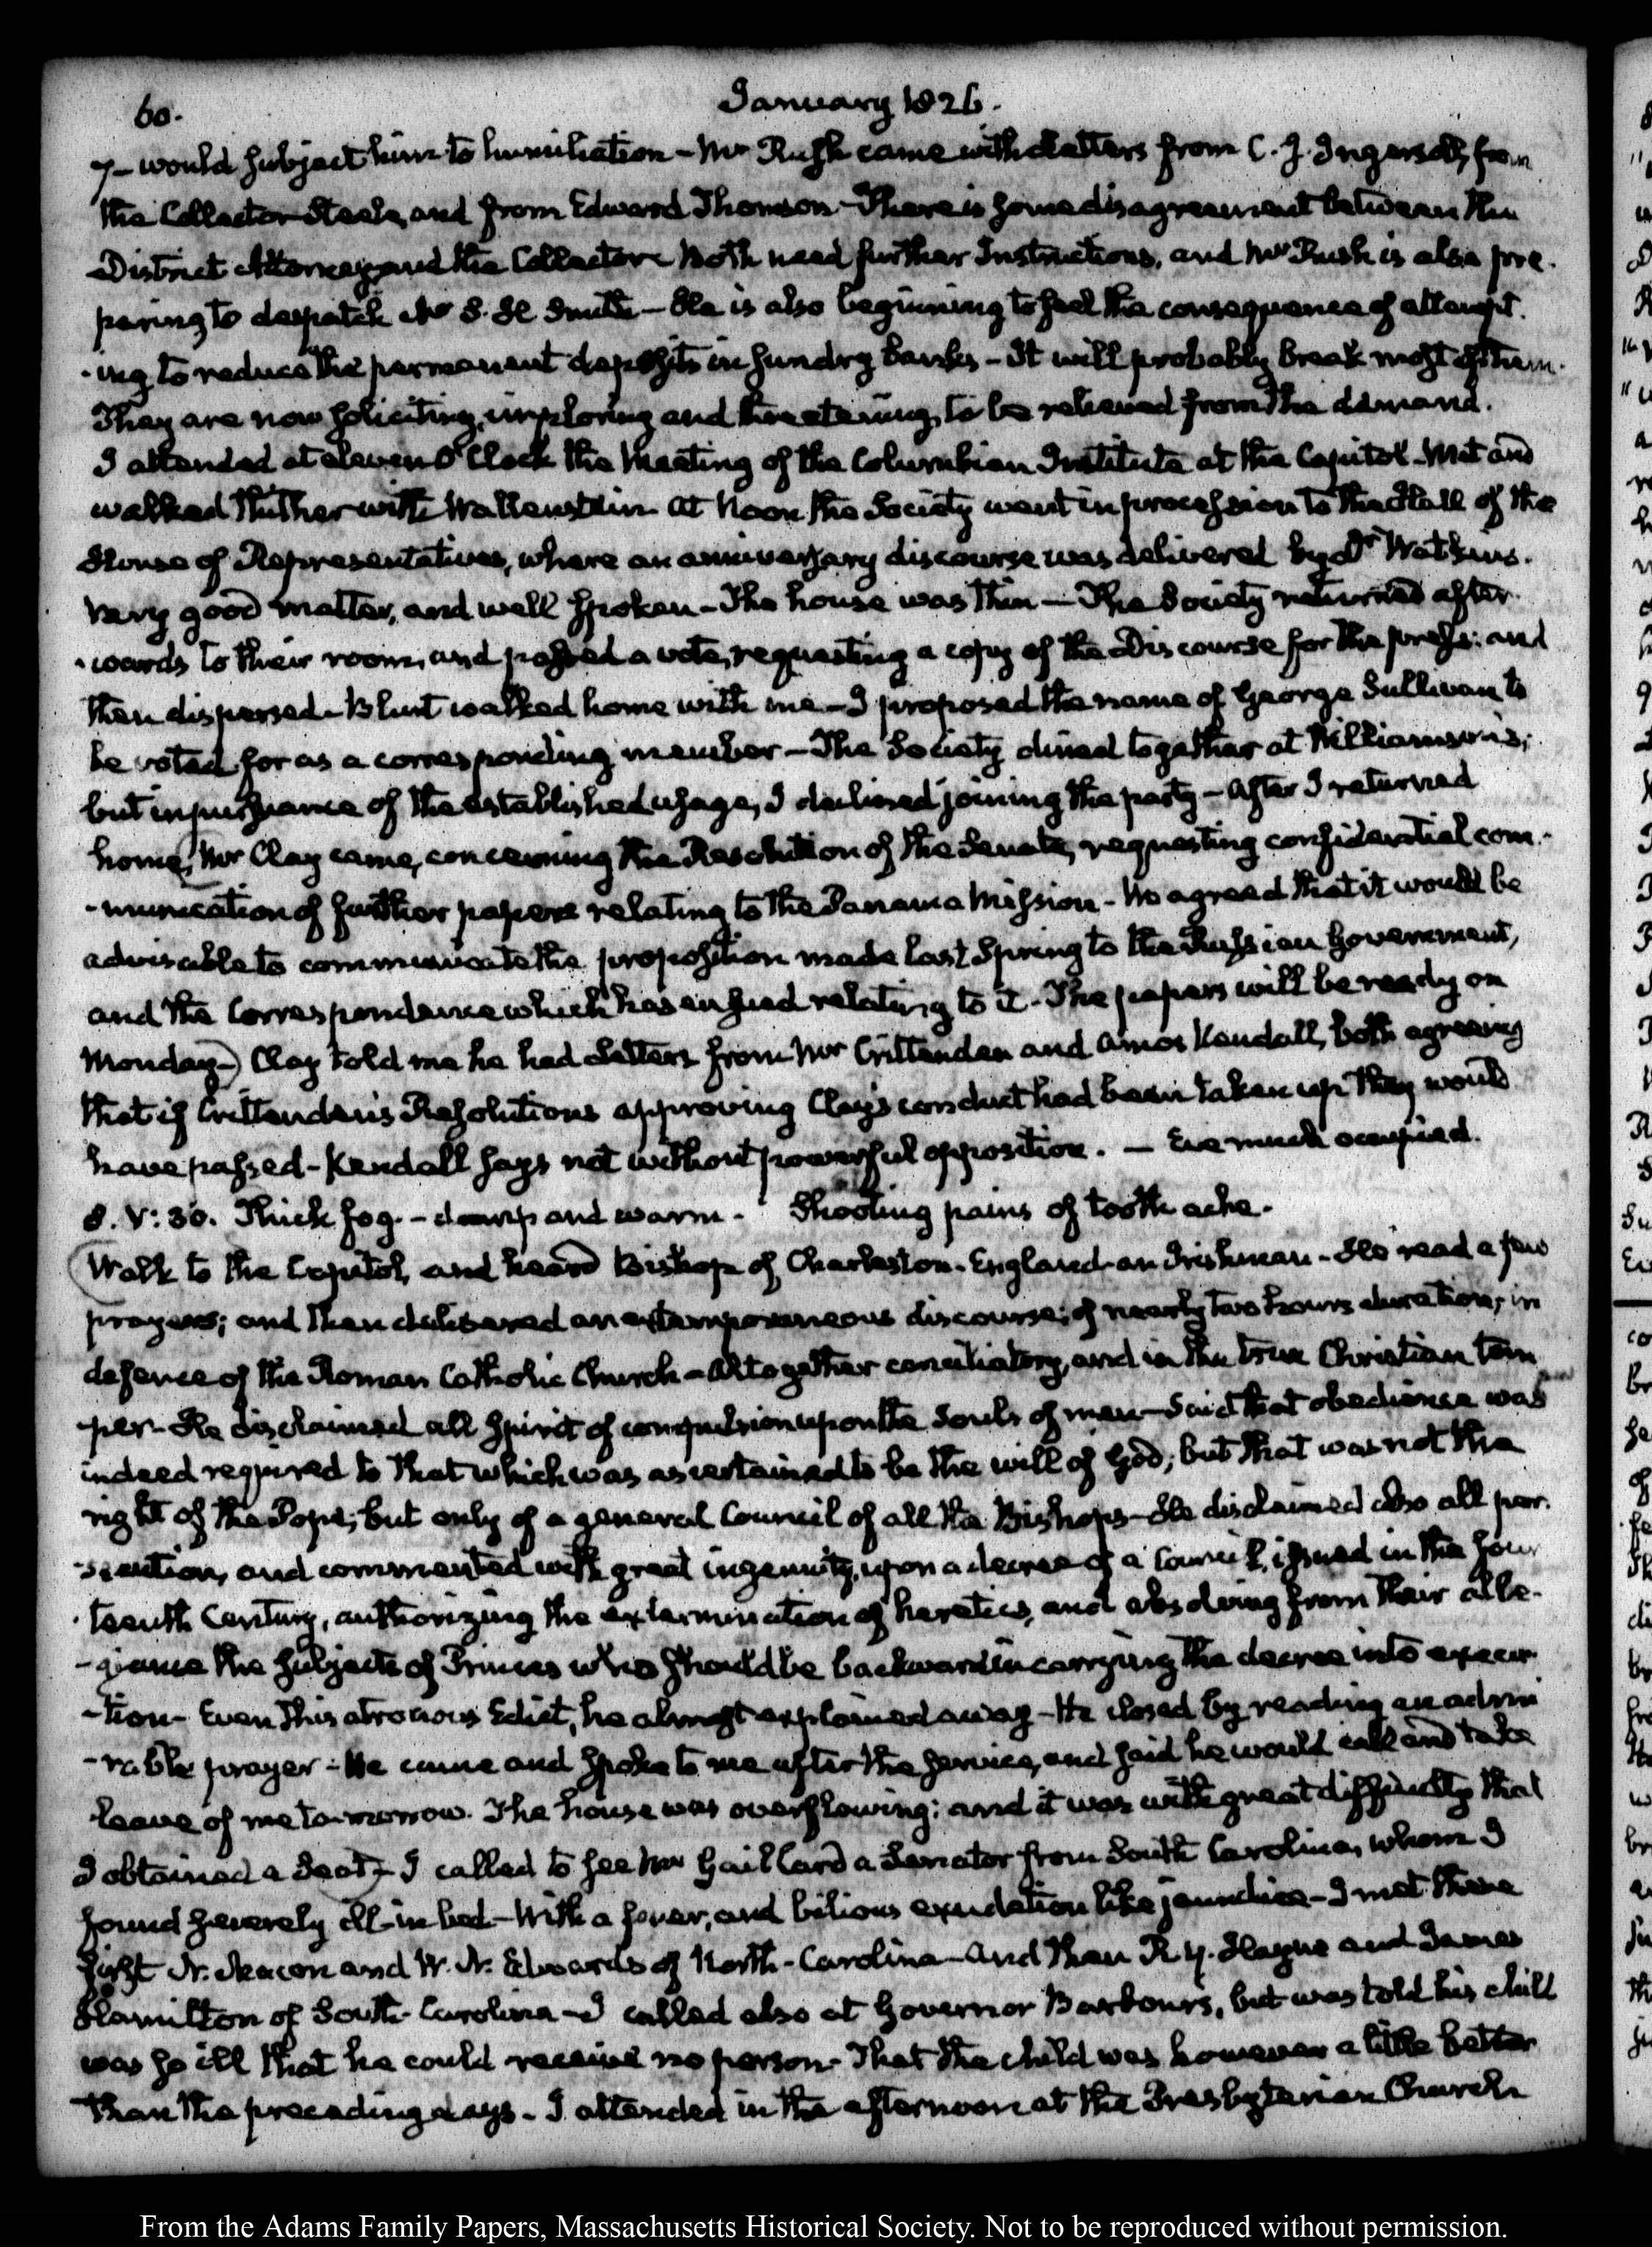 60.
January 1826.
7— would subject him to humiliation — Mr Rush came with Letters from C. J. Ingersoll, from
the Collector Steele, and from Edward Thomson — There is some disagreement between the
District Attorney and the Collector. Both need further Instructions, and Mr Rush is also pre-
paring to despatch Mr S. H. Smith — He is also beginning to feel the consequence of attempt-
-ing to reduce the permanent deposits in sundry Banks — It will probably break most of them.
They are now soliciting, imploring and threatening, to be relieved from the demand.
I attended at eleven O'Clock the Meeting of the Columbian Institute at the Capitol — Met and
walked thither with Wallenstein. At Noon the Society went in procession to the Hall of the
House of Representatives, where an anniversary discourse was delivered by Dr Watkins.
Very good matter, and well spoken — The house was thin — The Society returned after-
-wards to their room, and passed a vote, requesting a copy of the Discourse for the press: and
then dispersed — Blunt walked home with me — I proposed the name of George Sullivan to
be voted for as a corresponding member — The Society dined together at Williamson's;
but in pursuance of the established usage, I declined joining the party — After I returned
home, Mr Clay came, concerning the Resolution of the Senate, requesting confidential com-
-munication of further papers relating to the Panama Mission — We agreed that it would be
advisable to communicate the proposition made last Spring to the Russian Government,
and the Correspondence which has ensued relating to it — The papers will be ready on
Monday—) Clay told me he had Letters from Mr Crittenden and Amos Kendall, both agreeing
that if Crittenden's Resolutions approving Clay's conduct had been taken up they would
have passed — Kendall says not without powerful opposition. — Eve much occupied.
8. V: 30. Thick fog. — damp and warm. Shooting pains of tooth ache.
Walk to the Capitol, and heard Bishop of Charleston — England — an Irishman — He read a few
prayers; and then delivered an extemporaneous discourse; of nearly two hours duration, in
defence of the Roman Catholic Church — Altogether conciliatory, and in the true Christian tem
-per — He disclaimed all Spirit of compulsion upon the Souls of men — Said that obedience was
indeed required to that which was ascertained to be the will of God; but that was not the
right of the Pope; but only of a general Council of all the Bishops — He disclaimed also all per-
-secution, and commented with great ingenuity, upon a decree of a Council, issued in the four
-teenth Century, authorizing the extermination of heretics, and absolving from their alle-
-giance the subjects of Princes who should be backward in carrying the decree into execu-
-tion — Even this atrocious Edict, he almost explained away — He closed by reading an admi
-rable prayer — He came and spoke to me after the service, and said he would call and take
leave of me to-morrow. The house was overflowing; and it was with great difficulty that
I obtained a Seat — I called to see Mr Gaillard a Senator from South Carolina, whom I
found severely ill — in bed — With a fever, and bilious exudation like jaundice — I met there
first N. Macon and W. N. Edwards of North-Carolina — and then R. Y. Hayne and James
Hamilton of South-Carolina — I called also at Governor Barbour's, but was told his child
was so ill that he could receive no person — That the child was however a little better
than the preceding days — I attended in the afternoon at the Presbyterian Church
From the Adams Family Papers, Massachusetts Historical Society. Not to be reproduced without permission.